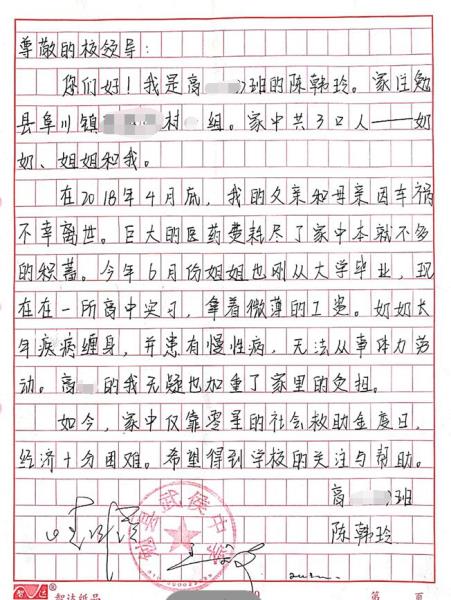 尊敬的校领导:
您们好!我是高 班的陈韩玲。家住勉
县阜川镇 村 组。家中共3口人——奶
奶、姐姐和我。
在2018年4月底,我的父亲和母亲因车祸
不幸离世。巨大的医药费耗尽了家中本就不多
的积蓄。今年6月份姐姐也刚从大学毕业,现
在在一所高中实习,拿着微薄的工资。奶奶长
年疾病缠身,并患有慢性病,无法从事体力劳
动。高 的我无疑也加重了家里的负担。
如今,家中仅靠零星的社会救助金度日,
经济十分困难。希望得到学校的关注与帮助。
高 班
陈韩玲
勉县武侯中学
智达
智达纸品
第 页